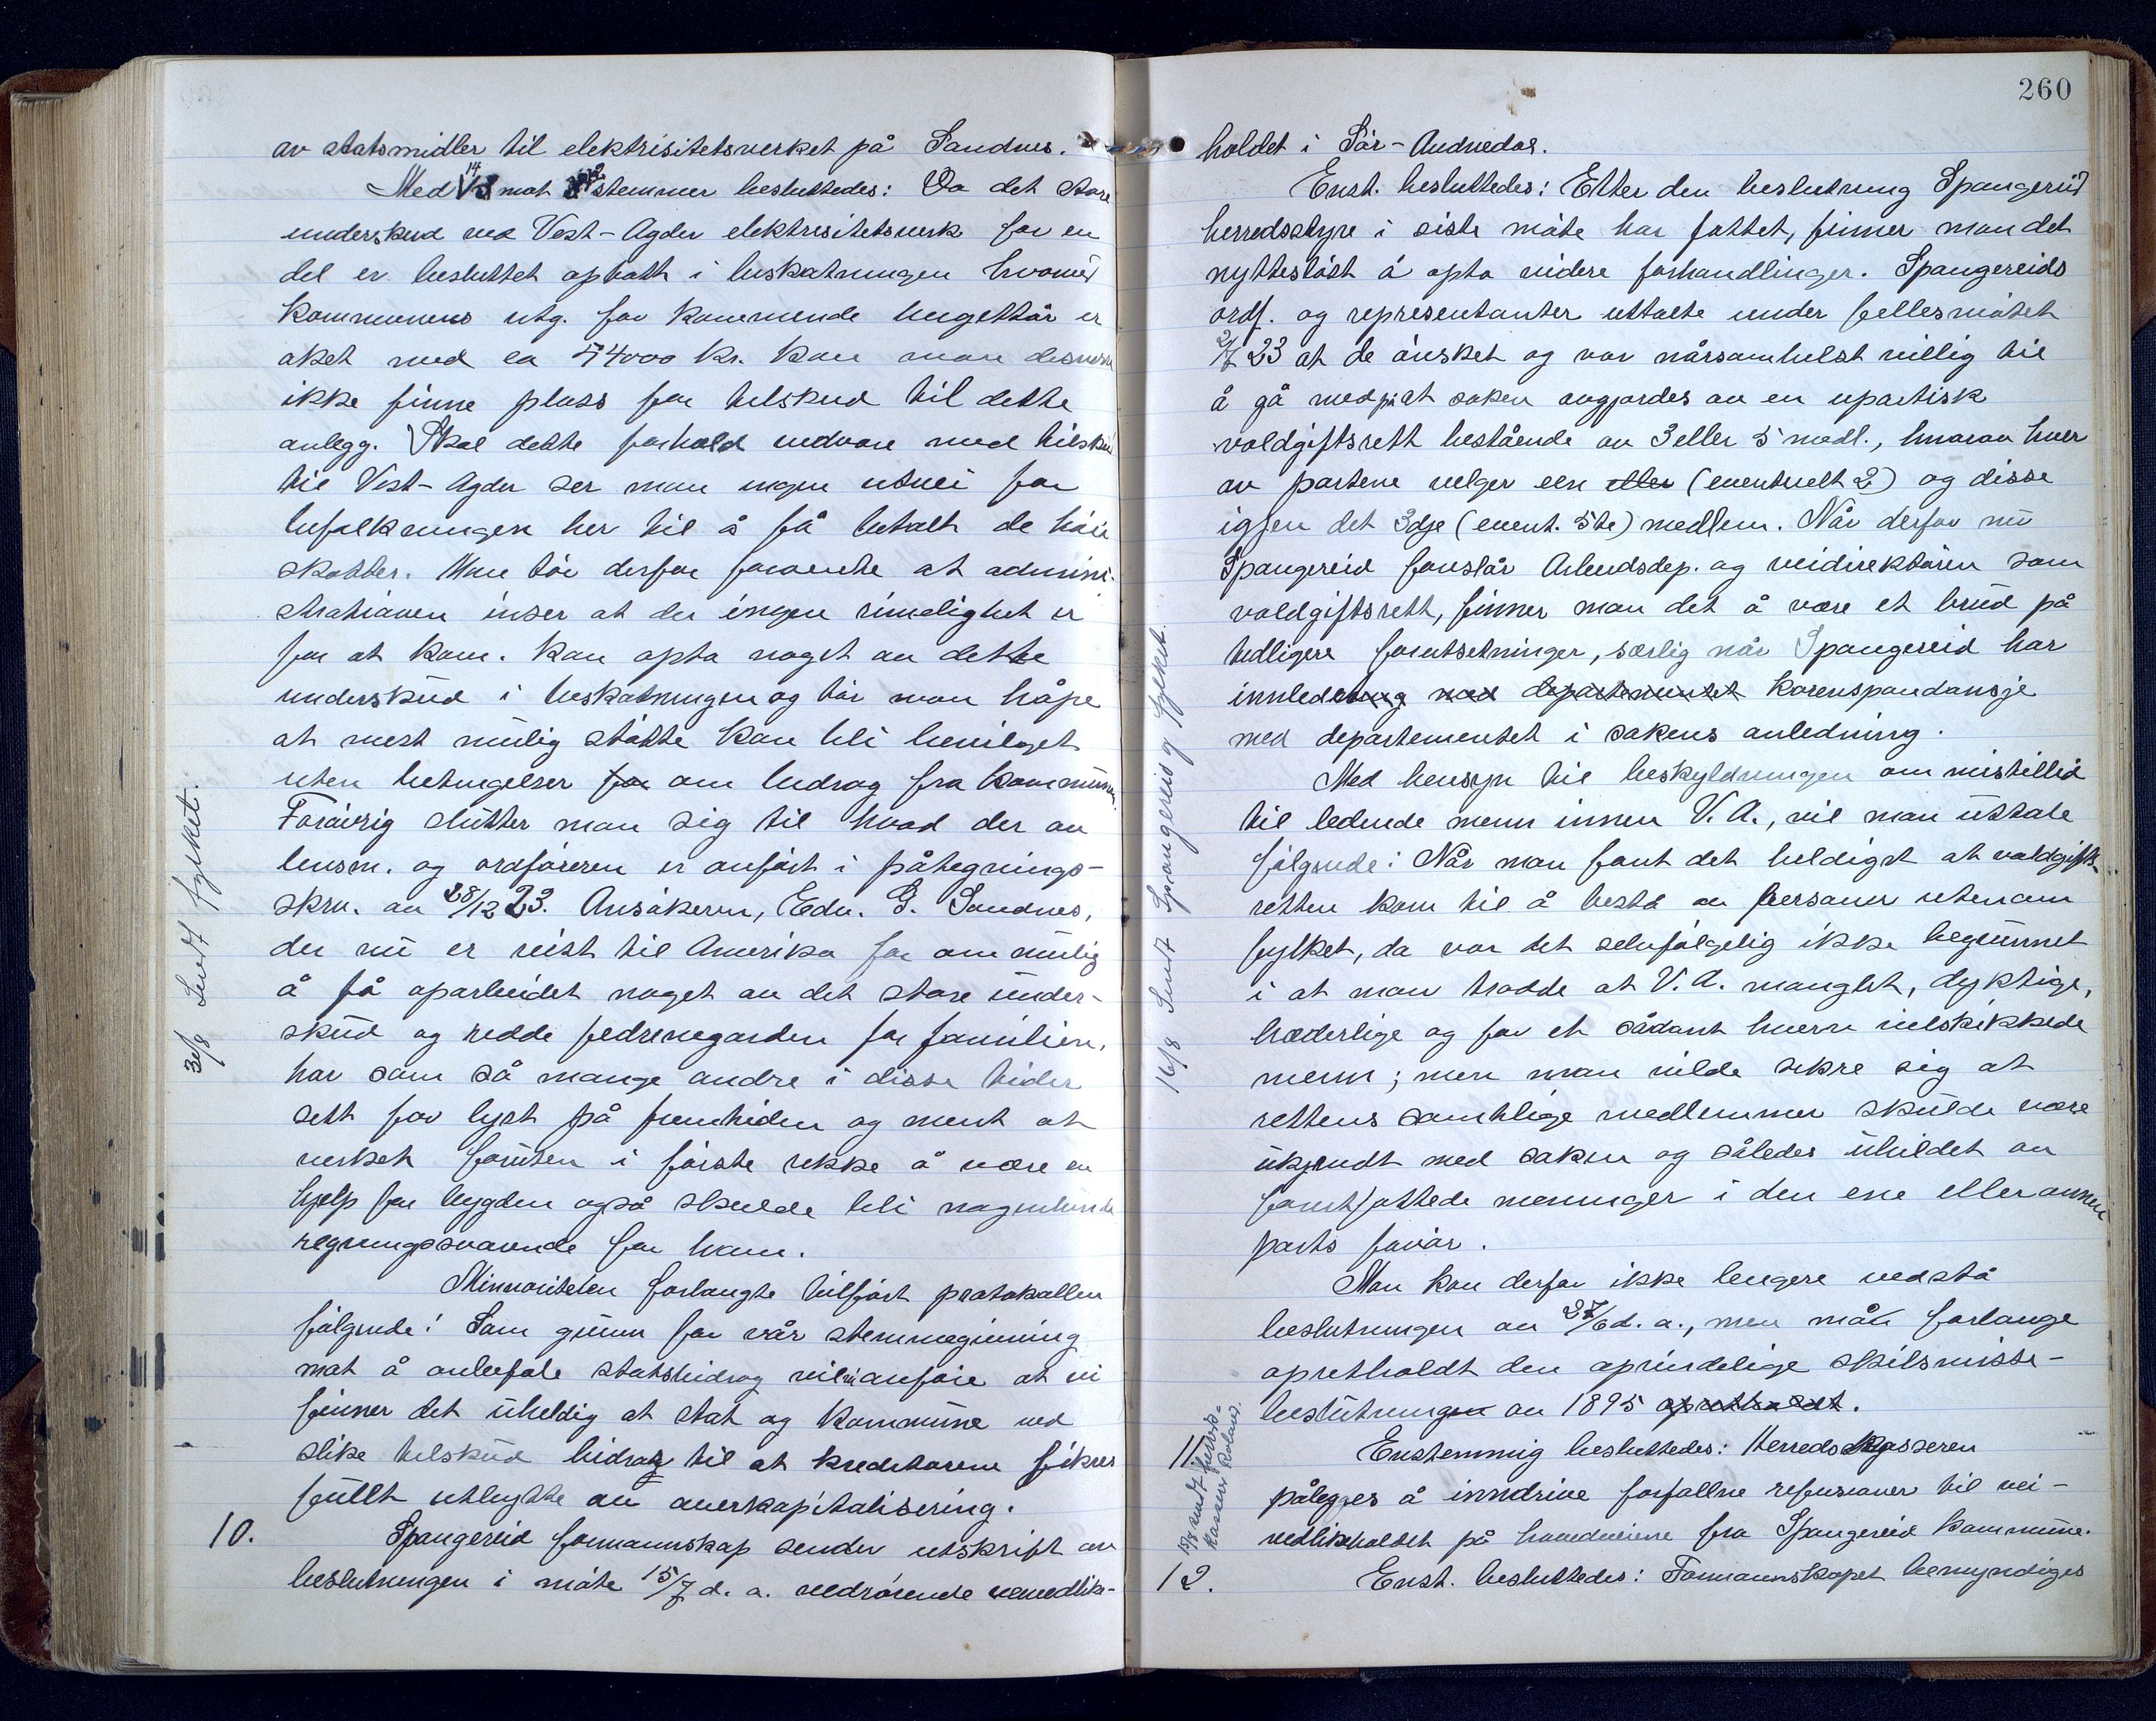 av statsmidler til elektrisitetsverket på Sandnes.
Med 14 mot stemmer besluttedes: Da det store
underskud ved Vest-Agder elektrisitetsverk for en
del er besluttet optatt i beskatningen hvorved
kommunens utg. for kommende bugettår er
øket med ca 44000 kr. kan man desverre
ikke finne plass for tilskud til dette
anlegg. Skal dette forhold vedvare med tilskud
til Vest-Agder ser man ingen utvei for
befolkningen her til å få betalt de høie
skatter. Man tør derfor forvente at admini-
strationen inser at der ingen rimelighet er
for at kom. kan opta noget av dette
underskud i beskatningen og tør man håpe
at mest mulig støtte kan bli bevilget
uten betingelser for om bidrag fra kommunen.
Forøvrig slutter man sig til hvad der av
lensm. og ordføreren er anført i påtegnings-
skrv. av 28/12 23. Ansøkeren, Edv. G. Sandnes,
der nu er reist til Amerika for om mulig
å få oparbeidet noget av det store under-
skud og redde fedrenegarden for familien,
har som så mange andre i disse tider
sett for lyst på fremtiden og ment at
verket foruten i første rekke å være en
hjelp for bygden også skulde bli nogenlunde
regningssvarende for ham.
Minnoriteten forlangte tilført protokollen
følgende: Som grunn for vår stemmegivning
mot å anbefale statsbidrag vil vi anføie at vi
finner det uheldig at stat og kommune ved
slike tilskud bidrag til at kreditorene sikres
fullt utbytte av overkapitalisering.
10. Spangereid formannskap sender utskrift av
beslutningen i møte 15/7 d. a. vedrørende veivedlike-
3/8 Sendt fylket.
260
holdet i Sør-Audnedal.
Enst. besluttedes: Etter den beslutning Spangereid
herredsstyre i siste møte har fattet, finner man det
nyttesløst å opta videre forhandlinger. Spangereids
ordf. og representanter uttalte under fellesmøtet
2/7 23 at de ønsket og var nårsomhelst villig til
å gå med på at saken avgjordes av en upartisk
voldgiftsrett bestående av 3 eller 5 medl., hvorav hver
av partene velger een eller (eventuelt 2) og disse
igjen det 3dje (event. 5te) medlem. Når derfor nu
Spangereid foreslår Arbeidsdep. og veidirektøren som
voldgiftsrett, finner man det å være et brud på
tidligere forutsetninger, særlig når Spangereid har
innledet med departementet korenspondansje
med departementet i sakens anledning.
Med hensyn til beskyldningen om mistillid
til ledende menn innen V. A., vil man uttale
følgende: Når man fant det heldigst at voldgifts-
retten kom til å bestå av personer utenom
fylket, da var det selvfølgelig ikke begrunnet
i at man trodde at V. A. manglet, dyktige,
hæderlige og for et sådant hverv velskikkede
menn; men man vilde sikre sig at
rettens samtlige medlemmer skulde være
ukjendt med saken og således uhildet av
forutfattede meninger i den ene eller annen
parts favør.
Man kan derfor ikke lengere vedstå
beslutningen av 27/6 d. a., men må forlange
opretholdt den oprindelige skilsmisse-
beslutning av 1895 opretholdt.
11. Enstemmig besluttedes: Herredskasseren
pålegges å inndrive forfallne refusioner til vei-
vedlikeholdet på hovedveiene fra Spangereid kommune.
12. Enst. besluttedes: Formannskapet bemyndiges
16/8 Sendt Spangereid og fylket.
13/8 sendt herreds-
kasserer Roland.